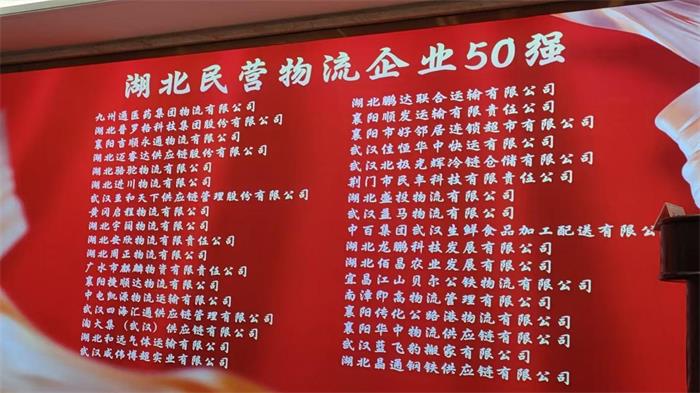 湖北民营物流企业50强
九州通医药集团物流有限公司
湖北普罗格科技集团股份有限公司
襄阳吉顺永通物流有限公司
湖北迈睿达供应链股份有限公司
湖北骆驼物流有限公司
湖北进川物流有限公司
武汉至和天下供应链管理股份有限公司
黄冈启程物流有限公司
湖北宇闾物流有限公司
湖北安欣物流有限责任公司
湖北周正物流有限公司
广水市麒麟物资有限责任公司
襄阳捷顺达物流有限公司
中电凯源物流运输有限公司
武汉四海汇通供应链管理有限公司
淘大集（武汉）供应链有限公司
湖北和远气体运输有限公司
武汉威伟博超实业有限公司
湖北鹏达联合运输有限公司
襄阳顺发运输有限责任公司
襄阳市好邻居连锁超市有限公司
武汉佳恒华中快运有限公司
武汉北极光辉冷链仓储有限公司
荆门市民丰科技有限责任公司
湖北盛投物流有限公司
武汉蓝马物流有限公司
中百集团武汉生鲜食品加工配送有限公
湖北龙鹏科技发展有限公司
湖北佰昌农业发展有限公司
宜昌江山贝尔公铁物流有限公司
南漳即高物流管理有限公司
襄阳传化公路港物流有限公司
襄阳华中物流供应链有限公司
武汉蓝飞豹搬家有限公司
湖北晶通钢铁供应链有限公司